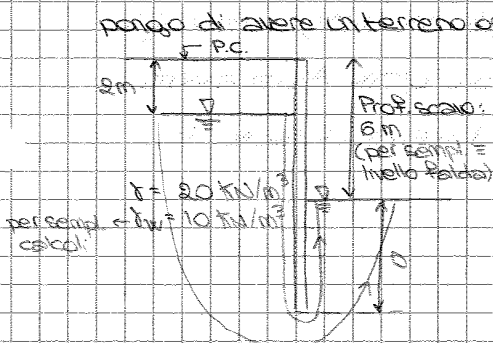 pongo di avere un terreno
← P.C.
2m
Prof. scavo:
6 m
(per sempl =
livello falda)
γ = 20 KN/m³
per sempl ← γw = 10 KN/m³
calcoli
D